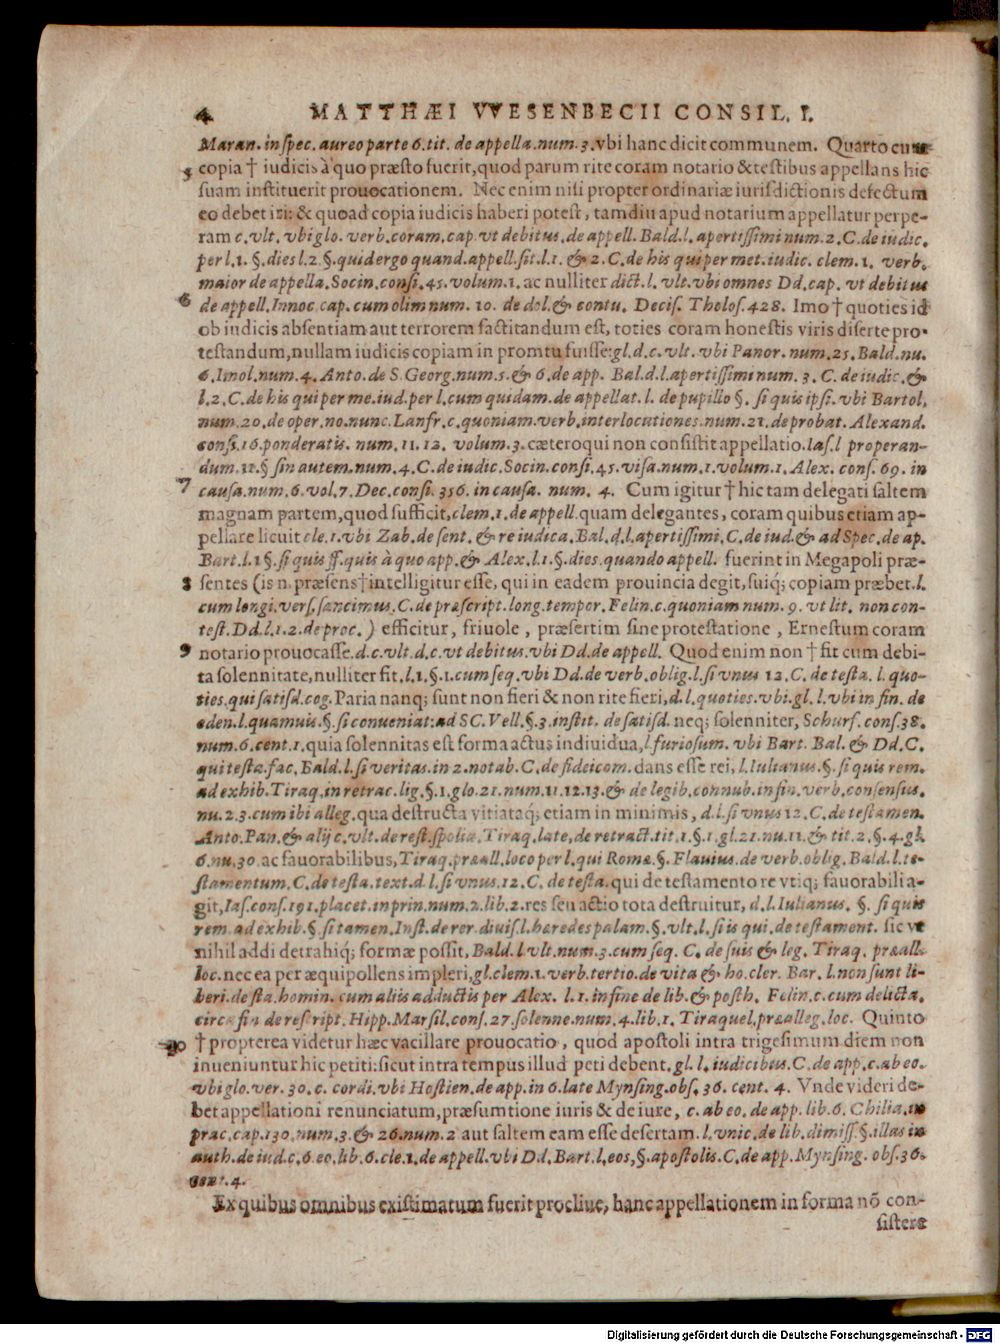 4 MATTHÆI VVESENBECII CONSIL. I.
Maran. in spec. aureo parte 6. tit. de appella. num. 3. vbi hanc dicit communem. Quarto cum
5 copia † iudicis à quo præsto fuerit, quod parum rite coram notario & testibus appellans hic
suam instituerit prouocationem. Nec enim nisi propter ordinariæ iurisdictionis defectum
eo debet iri: & quoad copia iudicis haberi potest, tamdiu apud notarium appellatur perpe-
ram c. vlt. vbi glo. verb. coram. cap. vt debitus. de appell. Bald. l. apertissimi num. 2. C. de iudic.
per l. 1. §. dies l. 2 §. quid ergo quand. appell. sit. l. 1. & 2. C. de his qui per met. iudic. clem. 1. verb.
maior de appella. Socin. consi. 45. volum. 1. ac nulliter dict. l. vlt. vbi omnes Dd. cap. vt debitus
6 de appell. Innoc. cap. cum olim num. 10. de dol. & contu. Decis. Tholos. 428. Imo † quoties id
ob iudicis absentiam aut terrorem factitandum est, toties coram honestis viris diserte pro-
testandum, nullam iudicis copiam in promtu fuisse: gl. d. c. vlt. vbi Panor. num. 25. Bald. nu.
6. Imol. num. 4. Anto. de S. Georg. num. 5. & 6. de app. Bal. d. l. apertissimi num. 3. C. de iudic. &
l. 2. C. de his qui per me. iud. per l. cum quidam. de appellat. l. de pupillo §. si quis ipsi. vbi Bartol.
num. 20. de oper. no. nunc. Lanfr. c. quoniam. verb. interlocutiones. num. 21. de probat. Alexand.
consi. 16. ponderatis. num. 11. 12. volum. 3. cæteroqui non consistit appellatio. Ias. l properan-
dum. 11. § sin autem. num. 4. C. de iudic. Socin. consi. 45. visa. num. 1. volum. 1. Alex. cons. 69. in
7 causa. num. 6. vol. 7. Dec. consi. 356. in causa. num. 4. Cum igitur † hic tam delegati saltem
magnam partem, quod sufficit, clem. 1. de appell. quam delegantes, coram quibus etiam ap-
pellare licuit cle. 1. vbi Zab. de sent. & re iudica. Bal. d. l. apertissimi. C. de iud. & ad Spec. de ap.
Bart. l. 1 §. si quis ff. quis à quo app. & Alex. l. 1. §. dies. quando appell. fuerint in Megapoli præ-
8 sentes (is n. præsens † intelligitur esse, qui in eadem prouincia degit, suiq; copiam præbet. l.
cum longi. vers. sancimus. C. de præscript. long. tempor. Felin. c. quoniam num. 9. vt lit. non con-
test. Dd. l. 1. 2. de proc. ) efficitur, friuole, præsertim sine protestatione, Ernestum coram
9 notario prouocasse. d. c. vlt. d. c. vt debitus. vbi Dd. de appell. Quod enim non † fit cum debi-
ta solennitate, nulliter fit, l. 1. §. 1. cum seq. vbi Dd. de verb. oblig. l. si vnus 12. C. de testa. l. quo-
ties. qui satisd. cog. Paria nanq; sunt non fieri & non rite fieri, d. l. quoties. vbi. gl. l. vbi in fin. de
eden. l. quamuis. §. si conueniat: ad SC. Vell. §. 3. instit. de satisd. neq; solenniter, Schurf. cons. 38.
num. 6. cent. 1. quia solennitas est forma actus indiuidua, l. furiosum. vbi Bart. Bal. & Dd. C.
qui testa. fac. Bald. l. si veritas. in 2. notab. C. de fideicom. dans esse rei, l. Iulianus. §. si quis rem.
ad exhib. Tiraq. in retrac. lig. §. 1. glo. 21. num. 11. 12. 13. & de legib. connub. in fin. verb. consensius.
nu. 2. 3. cum ibi alleg. qua destructa vitiataq; etiam in minimis, d. l. si vnus 12. C. de testamen.
Anto. Pan. & alij c. vlt. de rest. spolia. Tiraq. late, de retract. tit. 1. §. 1. gl. 21. nu. 11. & tit. 2. §. 4. gl.
6. nu. 30. ac fauorabilibus, Tiraq. præall. loco per l. qui Romæ. §. Flauius. de verb. oblig. Bald. l. te-
stamentum. C. de testa. text. d. l. si vnus. 12. C. de testa. qui de testamento re vtiq; fauorabili a-
git, Ias. cons. 191. placet. in prin. num. 2. lib. 2. res seu actio tota destruitur, d. l. Iulianus. §. si quis
rem. ad exhib. § si tamen. Inst. de rer. diuis. l. hæredes palam. §. vlt. l. si is qui. de testament. sic vt
nihil addi detrahiq; formæ possit, Bald. l. vlt. num. 3. cum seq. C. de suis & leg. Tiraq. præall.
loc. nec ea per æquipollens impleri, gl. clem. 1. verb. tertio. de vita & ho. cler. Bar. l. non sunt li-
beri. de sta. homin. cum aliis adductis per Alex. l. 1. in fine de lib. & posth. Felin. c. cum delicta.
circa fin de rescript. Hipp. Marsil. cons. 27. solenne. num. 4. lib. 1. Tiraquel. præalleg. loc. Quinto
10 † propterea videtur hæc vacillare prouocatio, quod apostoli intra trigesimum diem non
inueniuntur hic petiti: sicut intra tempus illud peti debent. gl. l. iudicibus. C. de app. c. ab eo.
vbi glo. ver. 30. c. cordi. vbi Hostien. de app. in 6. late Mynsing. obs. 36. cent. 4. Vnde videri de-
bet appellationi renunciatum, præsumtione iuris & de iure, c. ab eo. de app. lib. 6. Chilia. in
prac. cap. 130. num. 3. & 26. num. 2 aut saltem eam esse desertam. l. vnic. de lib. dimiss. §. illas in
auth. de iud. c. 6. eo. lib. 6. cle. 1. de appell. vbi Dd. Bart. l. eos, §. apostolis. C. de app. Mynsing. obs. 36.
cent. 4.
Ex quibus omnibus existimatum fuerit procliue, hanc appellationem in forma nõ con-
sistere
Digitalisierung gefördert durch die Deutsche Forschungsgemeinschaft - DFG